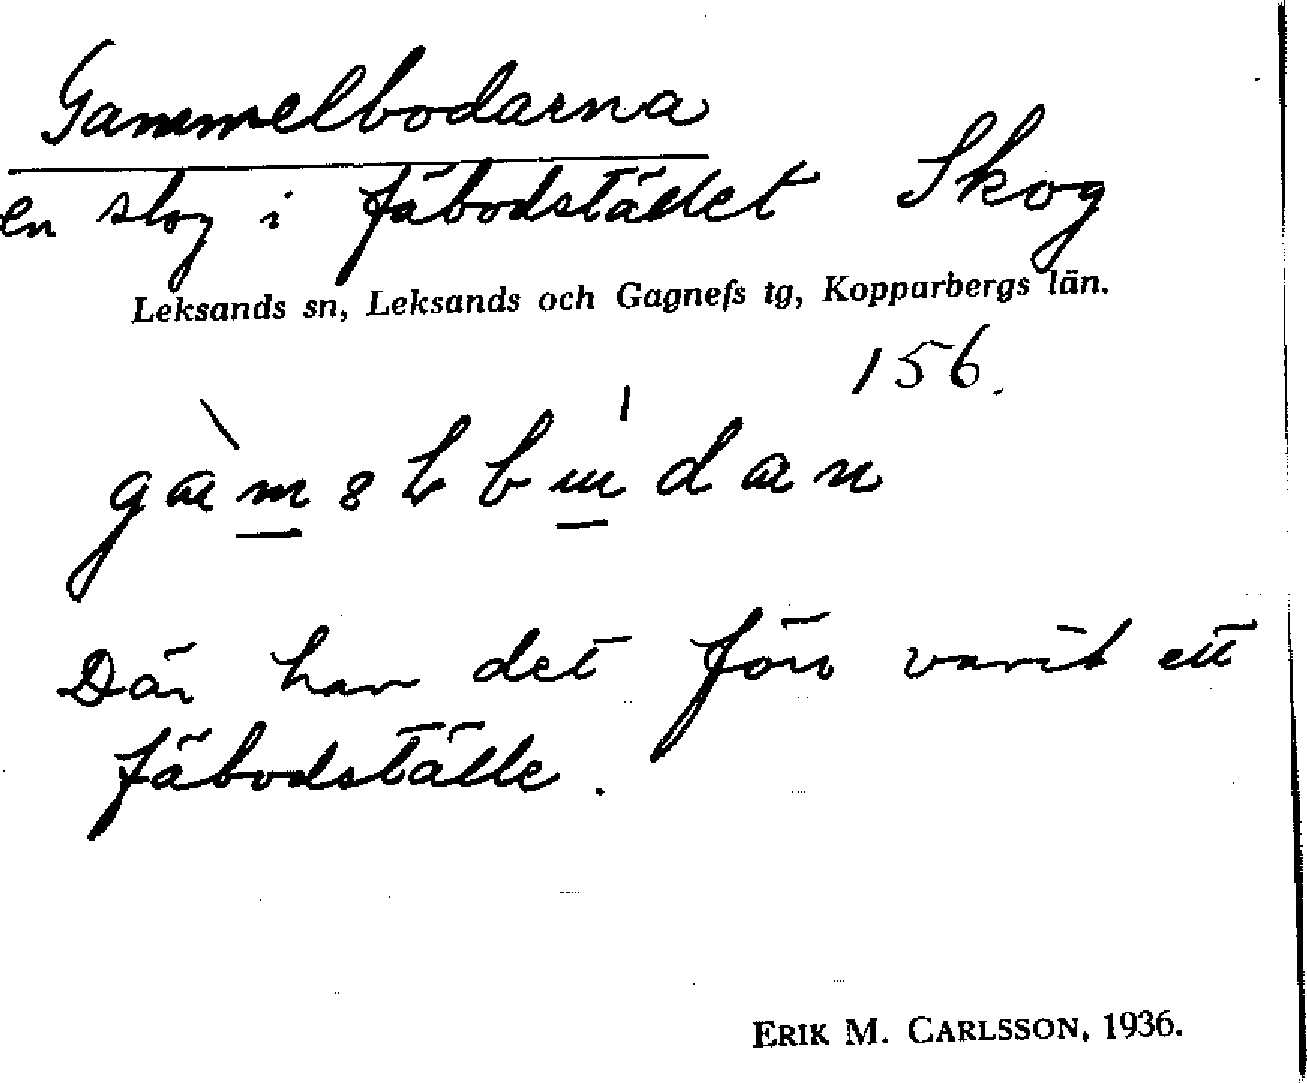 Gammelbodarna
en slog i fäbodstället Skog
Leksands sn, Leksands och Gagnefs tg, Kopparbergs län.
156.
Där har det förr varit ett
fäbodställe.
ERIK M. CARLSSON, 1936.